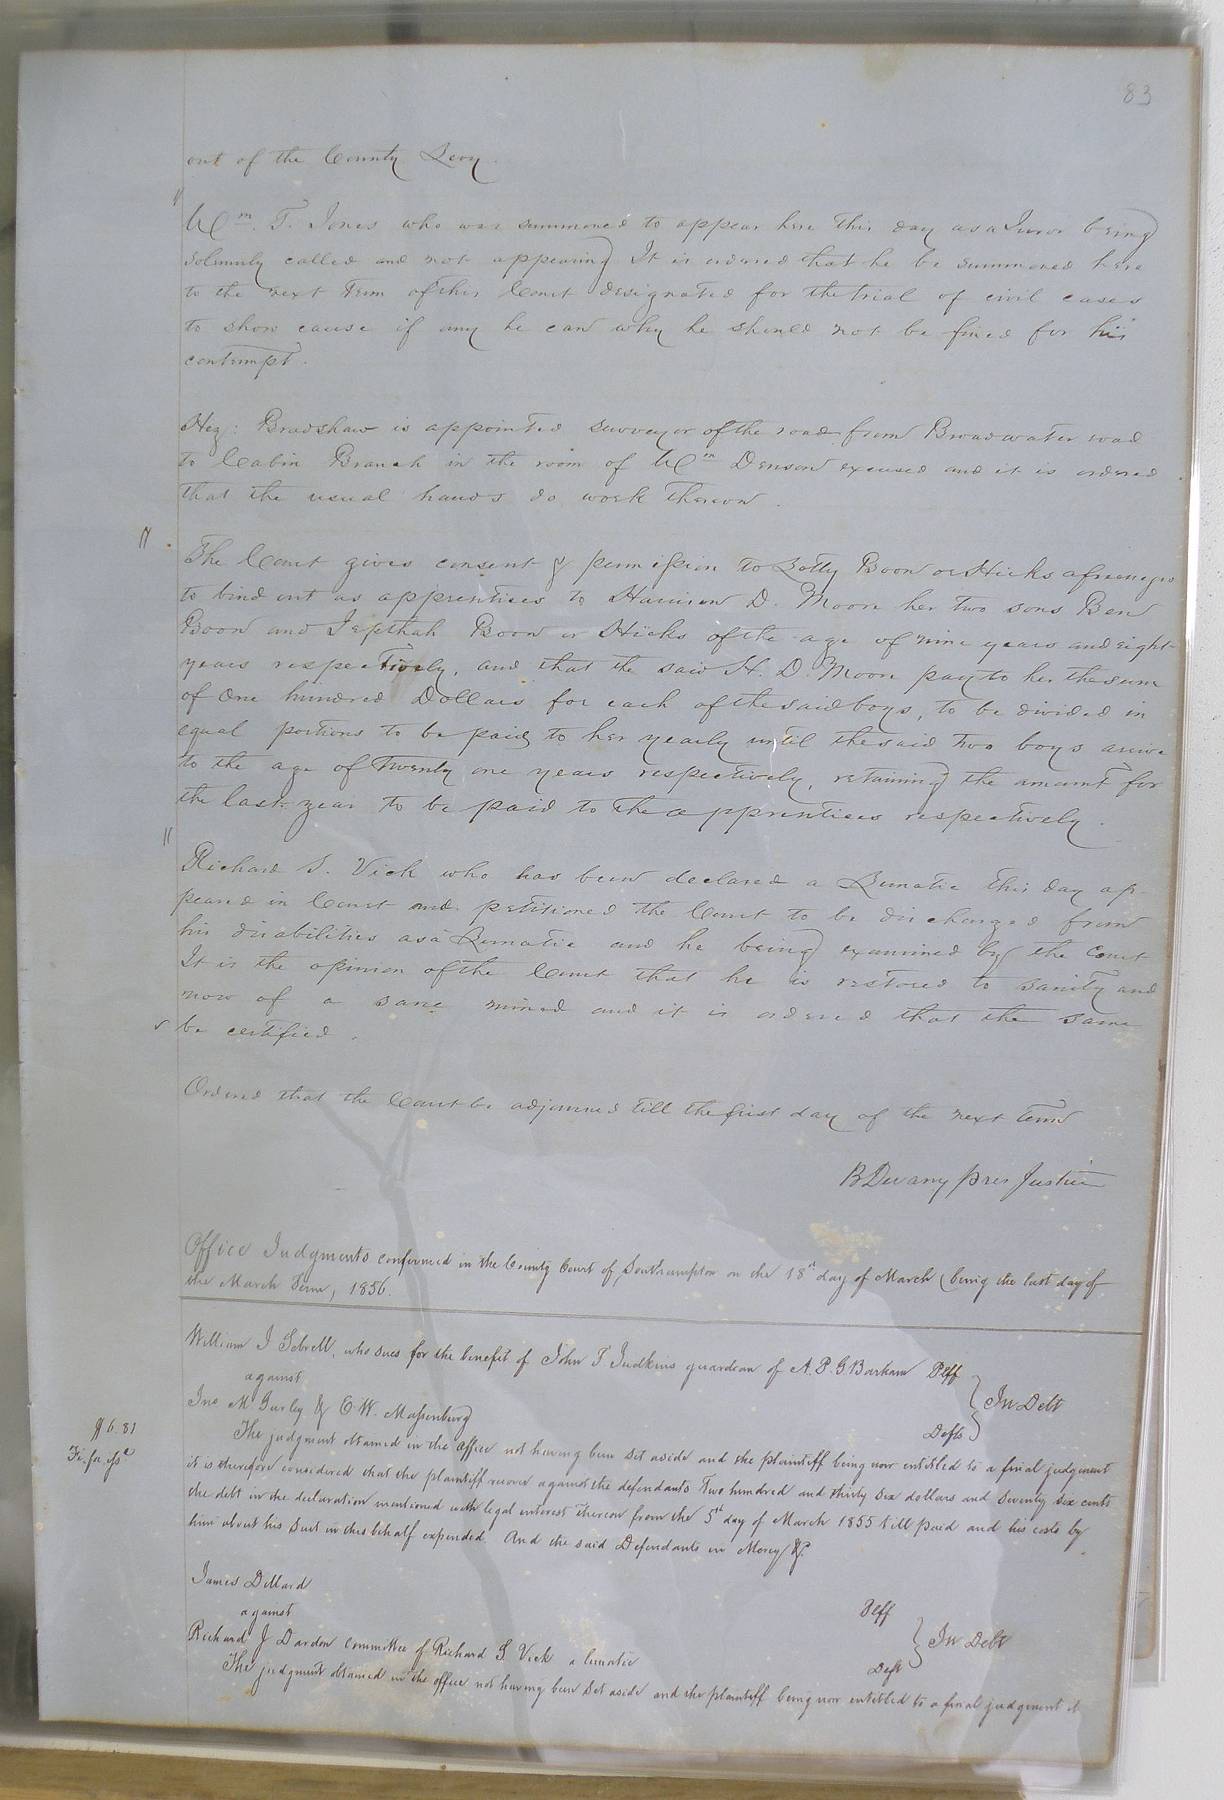 83
out of the County Levy.
Wm. T. Jones who was summoned to appear here this day as a Juror being
solemnly called and not appearing It is ordered that he be summoned here
to the next Term of this Court designated for the trial of civil cases
to show cause if any he can why he should not be fined for his
contempt.
Hez: Bradshaw is appointed surveyor of the road from Broadwater road
to Cabin Branch in the room of Wm Denson excused and it is ordered
that the usual hands do work thereon.
The Court gives consent & permission to Lotty Boon or Hicks a free negro
to bind out as apprentices to Harrison D. Moore her two sons Ben
Boon and Jepthah Boon or Hicks of the age of nine years and eight
years respectively, and that the said H. D. Moore pay to her the sum
of One hundred Dollars for each of the said boys, to be divided in
equal portions to be paid to her yearly until the said two boys arrive
to the age of Twenty one years respectively, retaining the amount for
the last year to be paid to the apprentices respectively.
Richard S. Vick who has been declared a Lunatic this day ap-
peared in Court and petitioned the Court to be discharged from
his disabilities as a Lunatic and he being examined by the Court
It is the opinion of the Court that he is restored to sanity and
now of a sane mind and it is ordered that the same
be certified.
Ordered that the Court be adjourned till the first day of the next term
B Devany pres Justice
Office Judgments confirmed in the County Court of Southampton on the 18th day of March (being the last day of
the March Term, 1856.
William J Sebrell, who sues for the benefit of John T. Judkins guardian of A. P. G Barham Plff
against
In Debt
Jno M Gurley & E W. Massenburg
Defts
$6.81
The judgment obtained in the office not having been set aside and the plaintiff being now entitled to a final judgment
Fi. fa.
it is therefore considered that the plaintiff recover against the defendants Two hundred and thirty six dollars and seventy six cents
the debt in the declaration mentioned with legal interest thereon from the 5th day of March 1855 till paid and his costs by
him about his suit in this behalf expended. And the said Defendants in Mercy &c
James Dillard
Plff
against
In Debt
Richard J Darden committee of Richard S Vick a lunatic
Deft
The judgment obtained in the office not having been set aside and the plaintiff being now entitled to a final judgment it